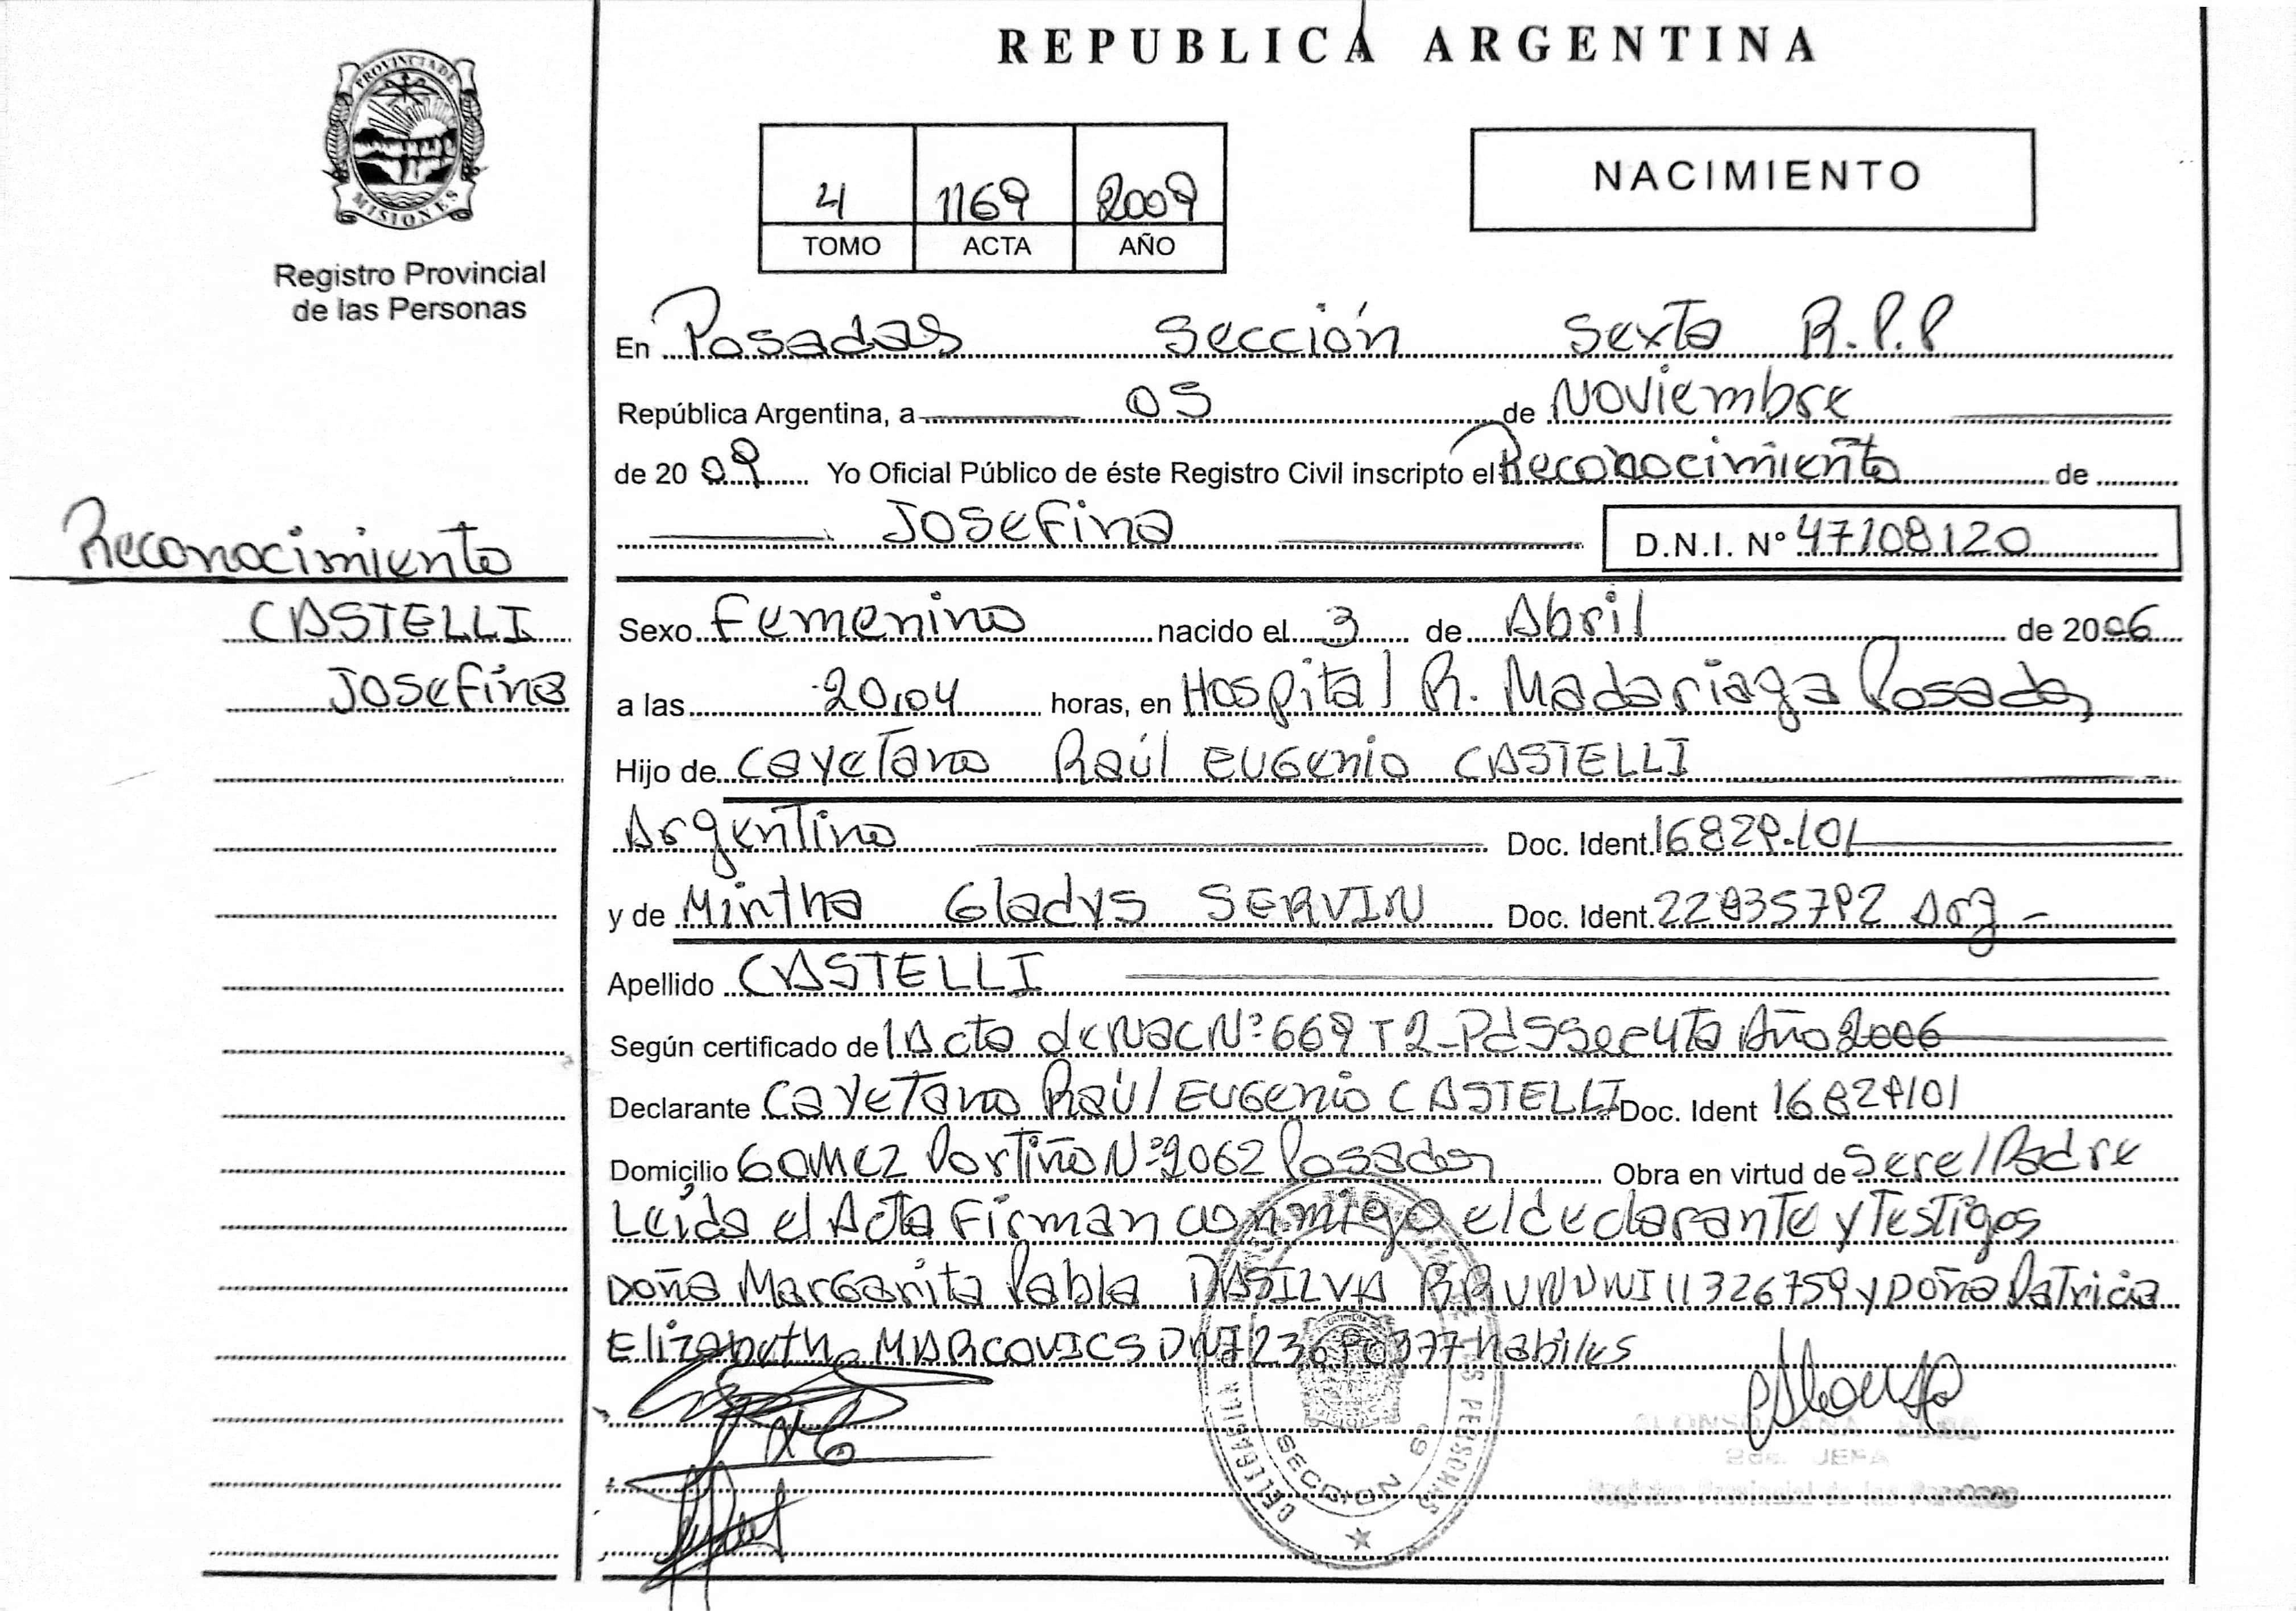 REPUBLICA ARGENTINA
PROVINCIA DE
MISIONES
Registro Provincial
de las Personas
4 1169 2009
TOMO ACTA AÑO
NACIMIENTO
En Posadas Sección Sexta R.P.P
República Argentina, a 05 de Noviembre
de 20 09 Yo Oficial Público de éste Registro Civil inscripto el Reconocimiento de
Josefina D.N.I. N° 47108120
Reconocimiento
CASTELLI
Josefina
Sexo Femenino nacido el 3 de Abril de 2006
a las 20,04 horas, en Hospital R. Madariaga Posadas
Hijo de Cayetano Raúl Eugenio CASTELLI
Argentino Doc. Ident. 16829.101
y de Mirtha Gladys SERVIN Doc. Ident. Arg -
Apellido CASTELLI
Según certificado de Acta de Nac N° 669 T2 Año 2006
Declarante Cayetano Raúl Eugenio CASTELLI Doc. Ident 16829101
Domicilio Gomez Portiño N° 2062 Posadas Obra en virtud de Ser el Padre
Leída el Acta Firman conmigo el declarante y Testigos
Doña Margarita Pabla DASILVA DNI 11326759 y Doña Patricia
Elizabeth MARCOVICS DNI habiles
PERSONAS
SECCION
JEFA